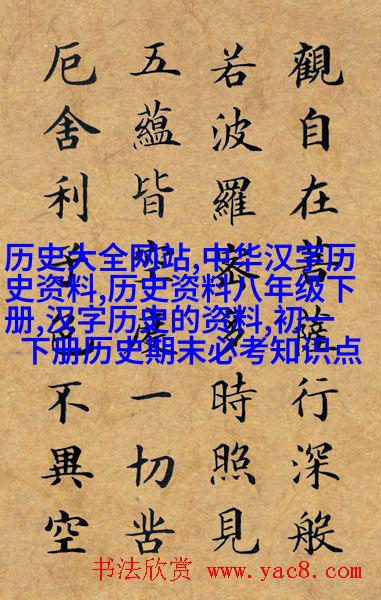 觀自在菩薩行深般
若波羅蜜多時照見
五蘊皆空度一切苦
厄舍利子色不異空
历史大全网站,中华汉字历
史资料,历史资料八年级下
册,汉字历史的资料,初一
下册历史期末必考知识点
书法欣赏 www.yac8.com